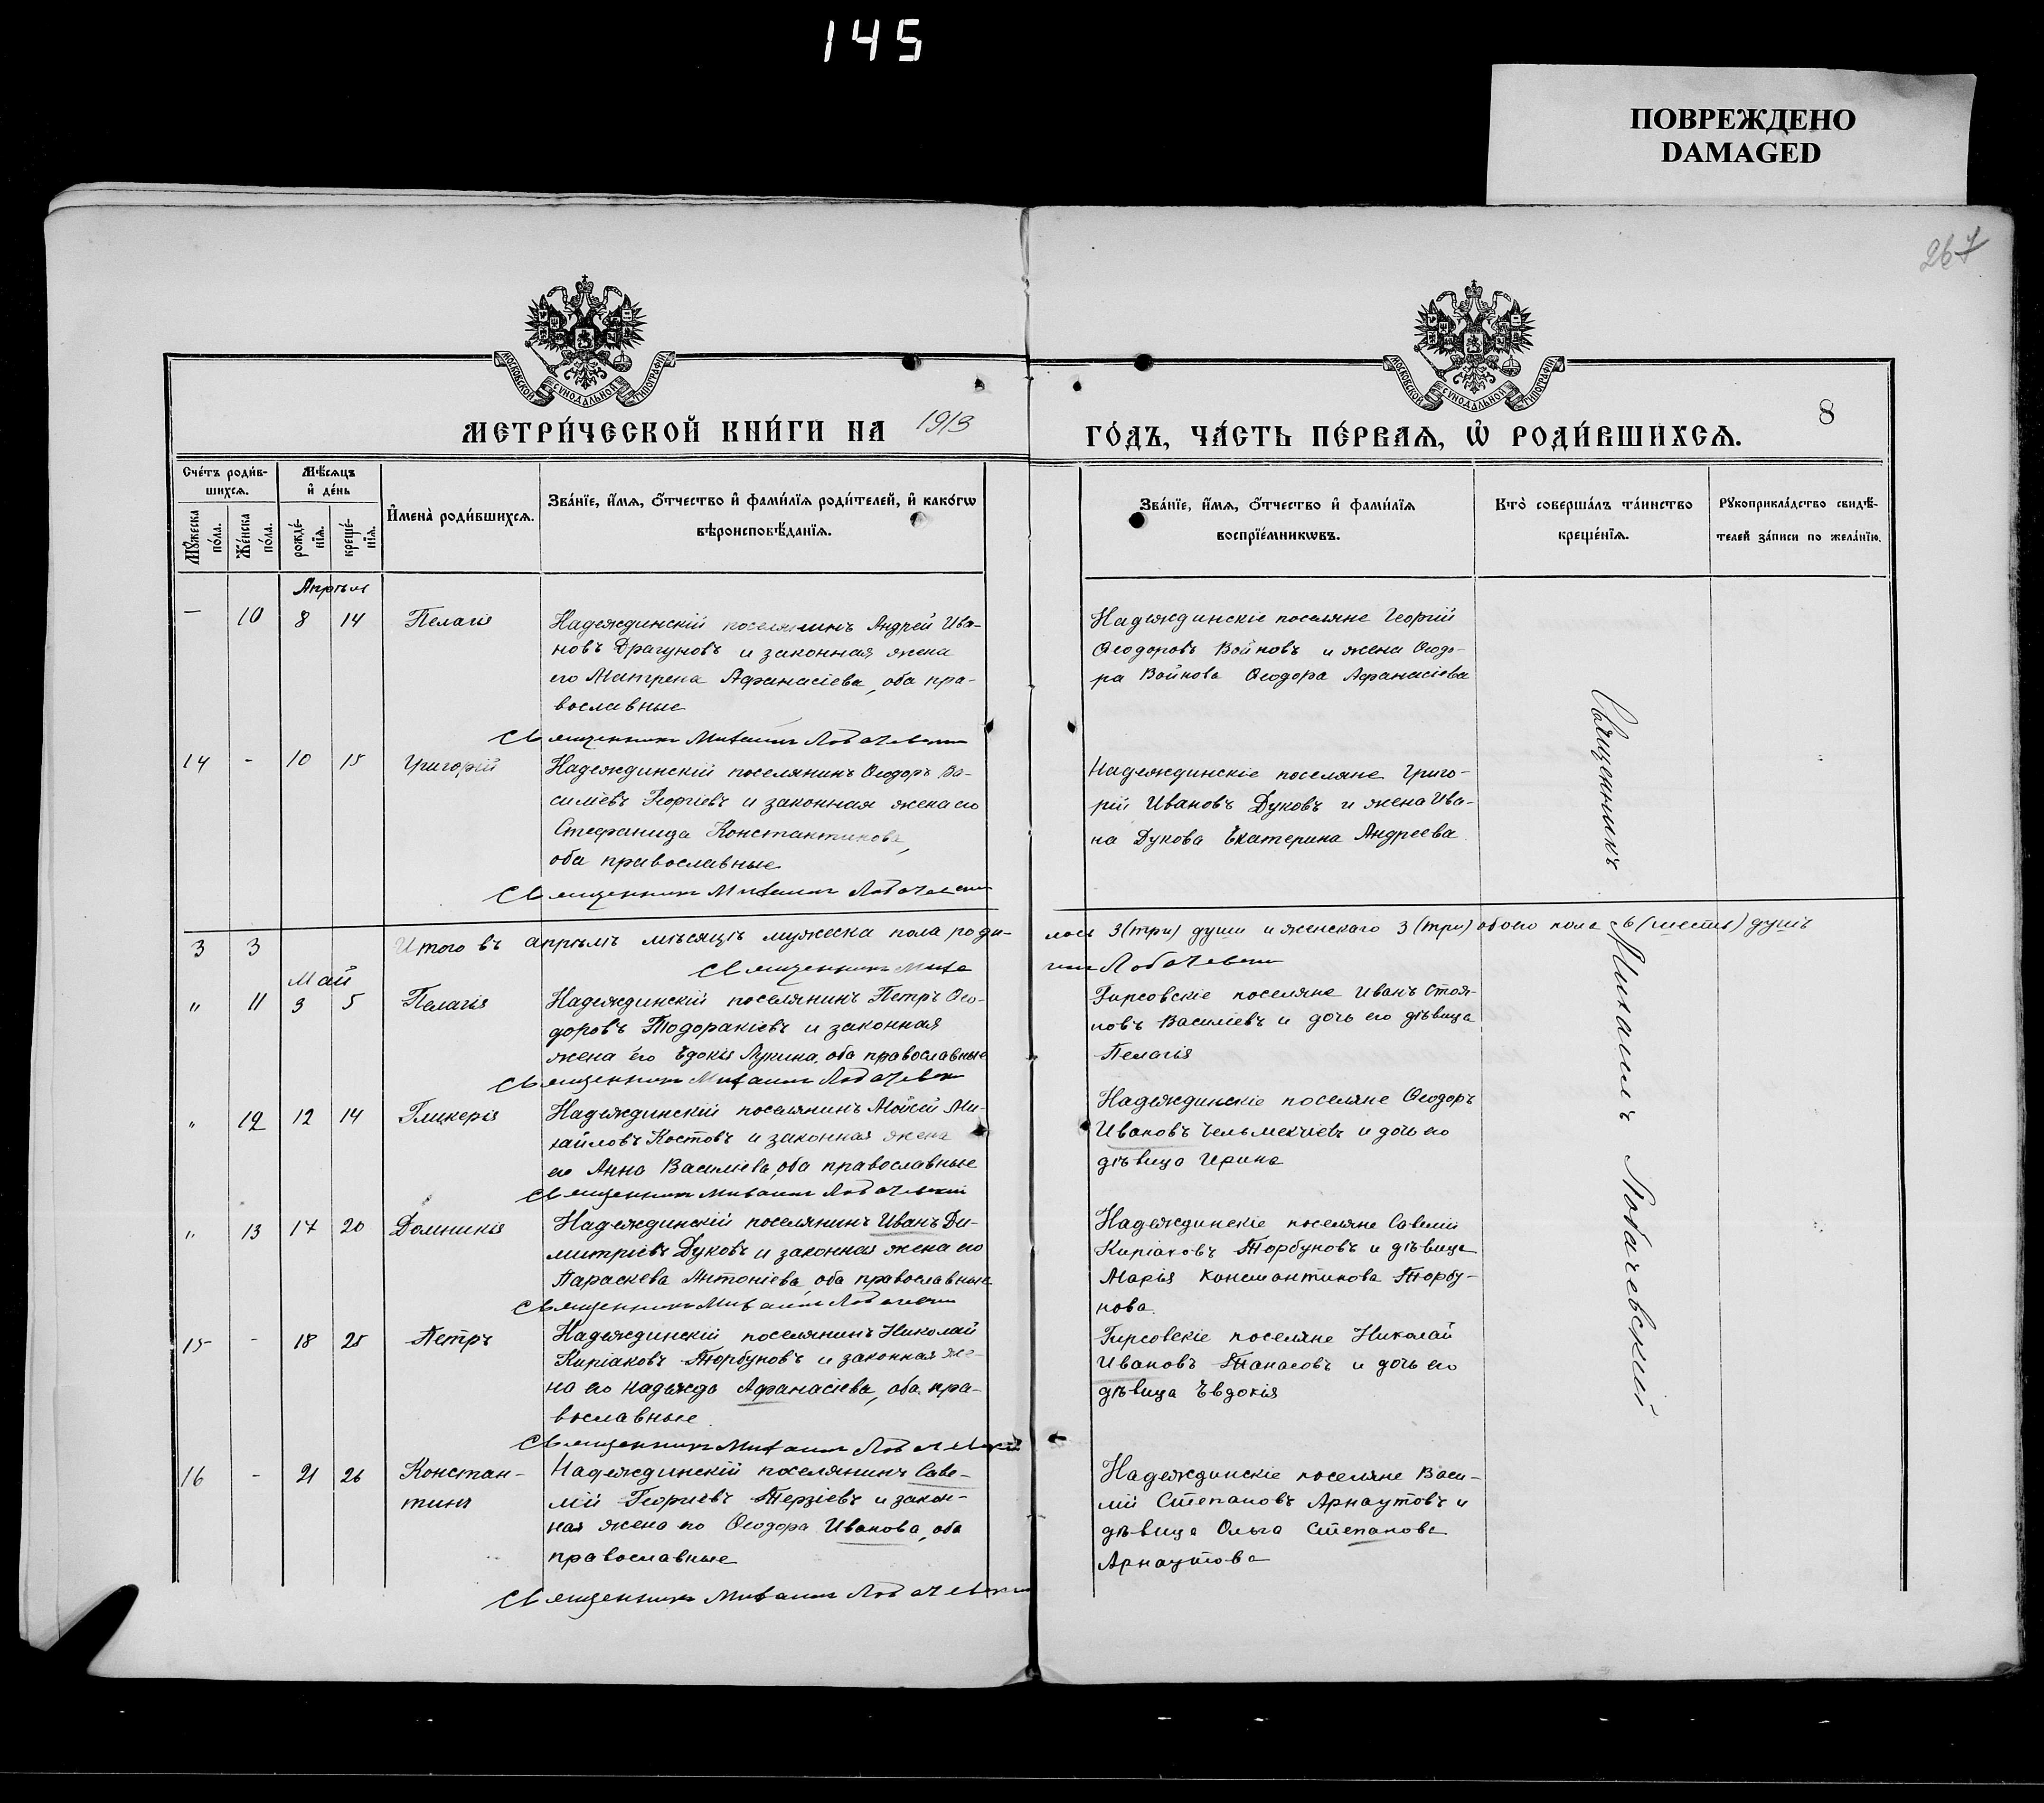 145
ПОВРЕЖДЕНО
DAMAGED
267
МОСКОВСКОЙ СѴНОДАЛЬНОЙ ТИПОГРАФІИ
МОСКОВСКОЙ СѴНОДАЛЬНОЙ ТИПОГРАФІИ
МЕТРИ́ЧЕСКОЙ КНИ́ГИ НА 1913
ГО́ДЪ, ЧА́СТЬ ПЕ́РВАѦ, Ѡ҆ РОДИ́ВШИХСѦ.
8
Сче́тъ роди́в-
шихсѧ.
Мѣ́сѧцъ
и҆ де́нь
Мꙋ́жеска
по́ла.
Же́нска
по́ла.
рожде́-
нїѧ.
креще́-
нїѧ.
И҆мена̀ роди́вшихсѧ.
Зва́нїе, и҆́мѧ, ѻ҆́тчество и҆ фами́лїѧ роди́телей, и҆ како́гѡ
вѣроисповѣ́данїѧ.
Зва́нїе, и҆́мѧ, ѻ҆́тчество и҆ фами́лїѧ
воспрїе́мникѡвъ.
Кто̀ соверша́лъ та́инство
креще́нїѧ.
Рꙋкоприкла́дство свидѣ́-
телей за́писи по жела́нїю.
Апрѣль
— 10 8 14 Пелагія
Надеждинскій поселянинъ Андрей Ива-
новъ Драгуновъ и законная жена
его Матрена Афанасіева, оба пра-
вославные
Священникъ Михаилъ Лобачевскій
Надеждинскіе поселяне Георгій
Ѳеодоровъ Войновъ и жена Ѳеодо-
ра Войнова Ѳеодора Афанасіева
14 - 10 15 Григорій
Надеждинскій поселянинъ Ѳеодоръ Ва-
силіевъ Георгіевъ и законная жена его
Стефанида Константинова,
оба православные
Священникъ Михаилъ Лобачевскій
Надеждинскіе поселяне Григо-
рій Ивановъ Дуковъ и жена Ива-
на Дукова Екатерина Андреева
3 3 Итого въ апрѣлѣ мѣсяцѣ мужеска пола роди-
лось 3 (три) души и женскаго 3 (три) обоего пола 6 (шесть) душъ
Священникъ Миха
илъ Лобачевскій
Май
" 11 3 5 Пелагія
Надеждинскій поселянинъ Петръ Ѳео-
доровъ Тодоракіевъ и законная
жена его Евдокія Лукина, оба православные
Священникъ Михаилъ Лобачевскій
Гирсовскіе поселяне Иванъ Стоя-
новъ Василіевъ и дочь его дѣвица
Пелагія
" 12 12 14 Гликерія
Надеждинскій поселянинъ Мойсей Ми-
хайловъ Костовъ и законная жена
его Анна Василіева, оба православные
Священникъ Михаилъ Лобачевскій
Надеждинскіе поселяне Ѳеодоръ
Ивановъ Чельмекчіевъ и дочь его
дѣвица Ирина
" 13 17 20 Домникія
Надеждинскій поселянинъ Иванъ Ди-
митріевъ Дуковъ и законная жена его
Параскева Антоніева, оба православные
Священникъ Михаилъ Лобачевскій
Надеждинскіе поселяне Савелій
Киріаковъ Торбуновъ и дѣвица
Марія Константинова Торбу-
нова.
15 - 18 25 Петръ
Надеждинскій поселянинъ Николай
Киріаковъ Торбуновъ и законная же-
на его Надежда Афанасіева, оба пра-
вославные.
Священникъ Михаилъ Лобачевскій
Гирсовскіе поселяне Николай
Ивановъ Танасовъ и дочь его
дѣвица Евдокія
16 - 21 26 Констан-
тинъ
Надеждинскій поселянинъ Саве-
лій Георгіевъ Терзіевъ и закон-
ная жена его Ѳеодора Иванова, оба
православные
Священникъ Михаилъ Лобачевскій
Надеждинскіе поселяне Васи-
лій Степановъ Арнаутовъ и
дѣвица Ольга Степанова
Арнаутова
Священникъ Михаилъ Лобачевскій